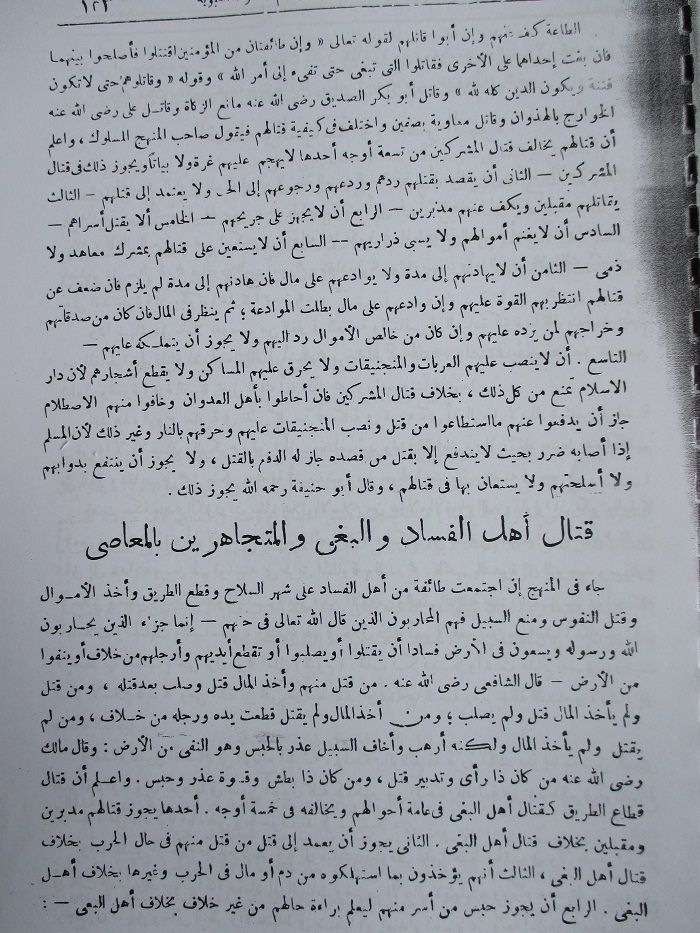 ١٢٣
الطاعة كف عنهم وإن أبوا قاتلهم لقوله تعالى « وإن طائفتان من المؤمنين اقتتلوا فأصلحوا بينهما
فان بغت إحداهما على الأخرى فقاتلوا التى تبغى حتى تفىء إلى أمر الله » وقوله « وقاتلوهم حتى لا تكون
فتنة ويكون الدين كله لله » وقاتل أبو بكر الصديق رضى الله عنه مانع الزكاة وقاتل على رضى الله عنه
الخوارج بالهذوان وقاتل معاوية بصفين واختلف فى كيفية قتالهم فيقول صاحب المنهج المسلوك ، واعلم
أن قتالهم يخالف قتال المشركين من تسعة أوجه أحدها لا يهجم عليهم غرة ولا بياتا ويجوز ذلك فى قتال
المشركين — الثانى أن يقصد بقتلهم ردهم وردعهم ورجوعهم إلى الحق ولا يعتمد إلى قتلهم — الثالث
يقاتلهم مقبلين ويكف عنهم مدبرين — الرابع أن لا يجهز على جريحهم — الخامس ألا يقتل أسراهم —
السادس أن لا يغنم أموالهم ولا يسبى ذراريهم — السابع أن لا يستعين على قتالهم بمشرك معاهد ولا
ذمى — الثامن أن لا يهادنهم إلى مدة ولا يوادعهم على مال فان هادنهم إلى مدة لم يلزم فان ضعف عن
قتالهم انتظر بهم القوة عليهم وإن وادعهم على مال بطلت الموادعة ؛ ثم ينظر فى المال فان كان من صدقاتهم
وخراجهم لمن يرده عليهم وإن كان من خالص الأموال رد اليهم ولا يجوز أن يتملكه عليهم —
التاسع . أن لا ينصب عليهم العربات والمنجنيقات ولا يحرق عليهم المساكن ولا يقطع أشجارهم لأن دار
الاسلام تمنع من كل ذلك ، بخلاف قتال المشركين فان أحاطوا بأهل العدوان وخافوا منهم الاصطلام
جاز أن يدفعوا عنهم ما استطاعوا من قتل ونصب المنجنيقات عليهم وحرقهم بالنار وغير ذلك لأن المسلم
إذا أصابه ضرر بحيث لا يندفع إلا بقتل من قصده جاز له الدفع بالقتل ، ولا يجوز أن ينتفع بدوابهم
ولا أسلحتهم ولا يستعان بها فى قتالهم ، وقال أبو حنيفة رحمه الله يجوز ذلك .
قتال أهل الفساد والبغى والمتجاهرين بالمعاصى
جاء فى المنهج إن اجتمعت طائفة من أهل الفساد على شهر السلاح وقطع الطريق وأخذ الأموال
وقتل النفوس ومنع السبيل فهم المحاربون الذين قال الله تعالى فى حقهم — إنما جزاء الذين يحاربون
الله ورسوله ويسعون فى الأرض فسادا أن يقتلوا أو يصلبوا أو تقطع أيديهم وأرجلهم من خلاف أو ينفوا
من الأرض — قال الشافعى رضى الله عنه . من قتل منهم وأخذ المال قتل وصلب بعد قتله ، ومن قتل
ولم يأخذ المال قتل ولم يصلب ؛ ومن أخذ المال ولم يقتل قطعت يده ورجله من خلاف ، ومن لم
يقتل ولم يأخذ المال ولكنه أرهب وأخاف السبيل عذر بالحبس وهو النفى من الأرض : وقال مالك
رضى الله عنه من كان ذا رأى وتدبير قتل ، ومن كان ذا بطش وقوة عذر وحبس . واعلم أن قتال
قطاع الطريق كقتال أهل البغى فى عامة أحوالهم ويخالفه فى خمسة أوجه . أحدها يجوز قتالهم مدبرين
ومقبلين بخلاف قتال أهل البغى . الثانى يجوز أن يعمد إلى قتل من قتل منهم فى حال الحرب بخلاف
قتال أهل البغى ، الثالث أنهم يؤخذون بما استهلكوه من دم أو مال فى الحرب وغيرها بخلاف أهل
البغى . الرابع أن يجوز حبس من أسر منهم ليعلم براءة حالهم من غير خلاف بخلاف أهل البغى — :